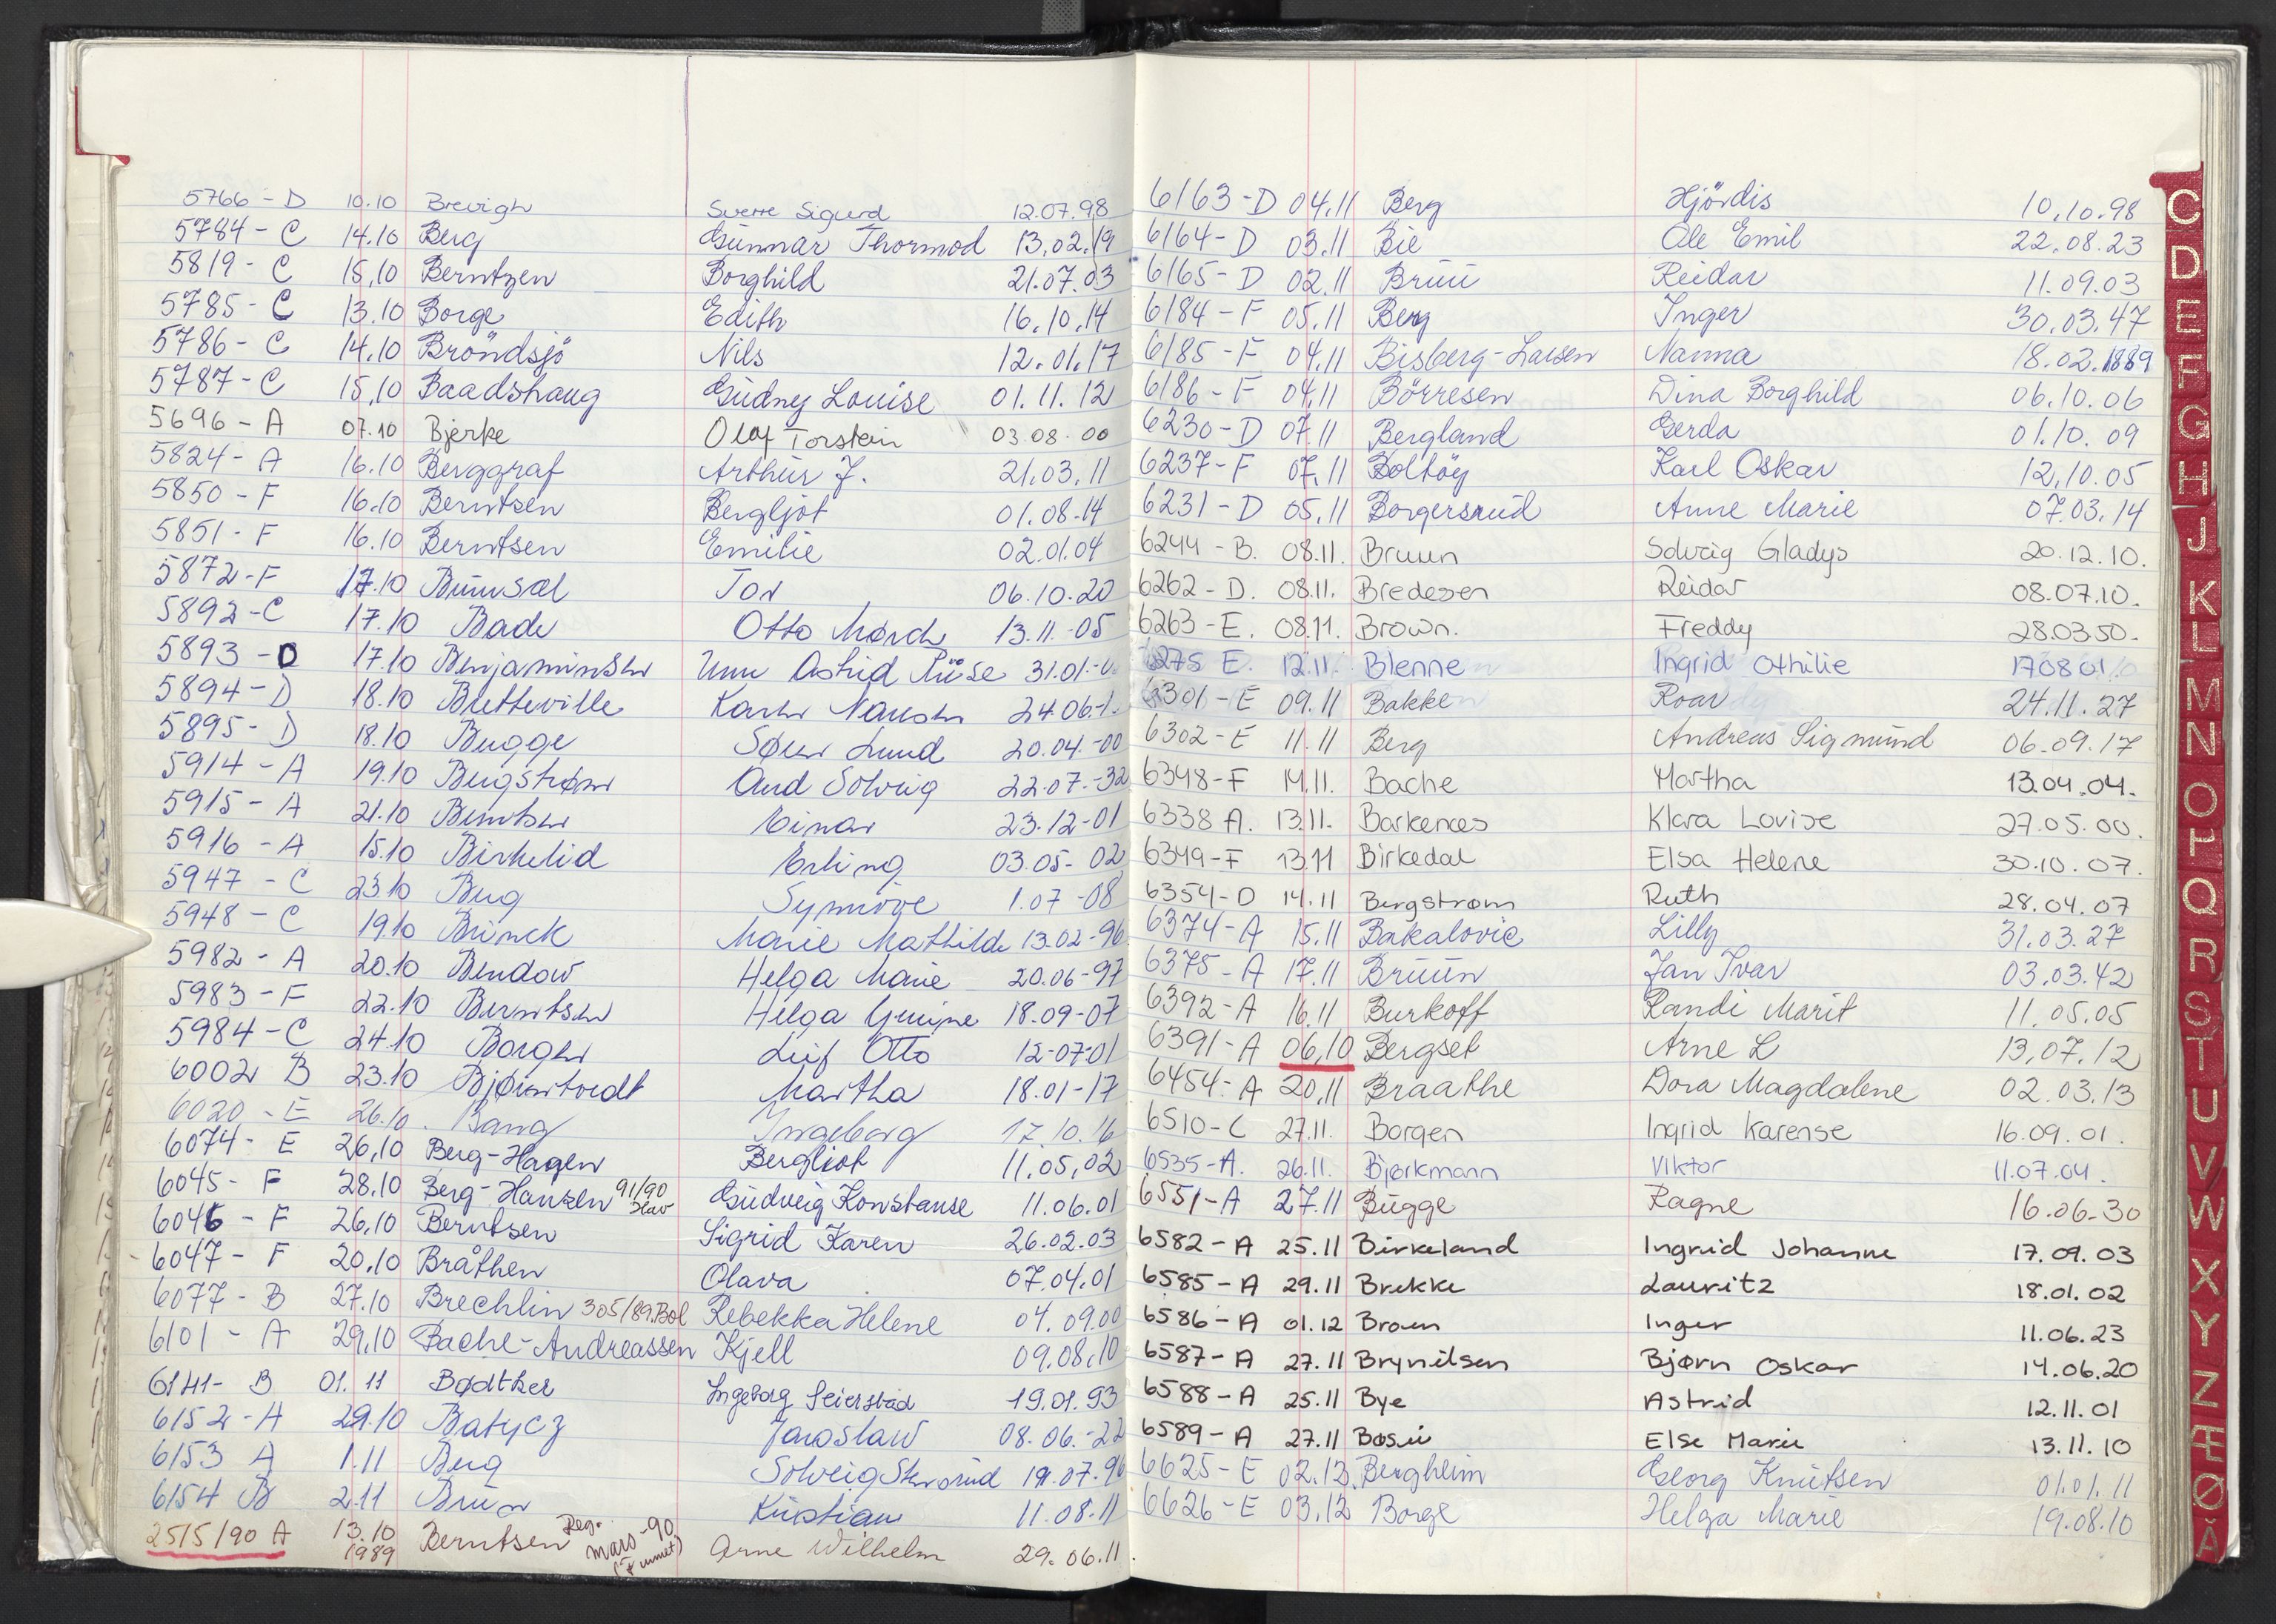 5766 - D 10.10 Brevigh Sverre Sigurd 12.07.98
5784 - C 14.10 Berg Gunnar Thormod 13.02.19
5819 - C 15.10 Berntzen Borghild 21.07.03
5785 - C 13.10 Borge Edith 16.10.14
5786 - C 14.10 Bröndsjö Nils 12.01.17
5787 - C 15.10 Baadshaug Gudny Louise 01.11.12
5696 - A 07.10 Bjerke Olaf Torstein 03.08.00
5824 - A 16.10 Berggraf Arthur J. 21.03.11
5850 - F 16.10 Berntsen Bergljot 01.08.14
5851 - F 16.10 Berntsen Emilie 02.01.04
5872 - F 17.10 Tor 06.10.20
5892 - C 17.10 Bade Otto Mørch 13.11.-05
5893 - D 17.10 Benjaminsen Unni Astrid 31.01.-
5894 - D 18.10 Bretteville Karen 24.06.-
5895 - D 18.10 Bugge Søren Lund 20.04.-00
5914 - A 19.10 Bergstrøm Aud Solveig 22.07.-32
5915 - A 21.10 Berntsen Einar 23.12-01
5916 - A 15.10 Birkelid Erling 03.05-02
5947 - C 23.10 Berg Synnöve 1.07-08
5948 - C 19.10 Brinck Marie Mathilde 13.02-96
5982 - A 20.10 Bendow Helga Marie 20.06-97
5983 - F 22.10 Berntsen Helga 18.09-07
5984 - C 24.10 Borgen Leif Otto 12-07-01
6002 B 23.10 Martha 18.01-17
6020 - E 26.10 Bang Ingeborg 17.10.16
6074 - E 26.10 Berg-Hagen Bergliot 11.05.02
6045 - F 28.10 Berg-Hansen 91/90 Gudveig Konstanse 11.06.01
6046 - F 26.10 Berntsen Sigrid Karen 26.02.03
6047 - F 20.10 Bråthen Olava 07.04.01
6077 - B 27.10 Brechlin 305/89.Bol Rebekka Helene 04.09.00
6101 - A 29.10 Bache-Andreassen Kjell 09.08.10
6141 - B 01.11 Bødtker Ingeborg Seierstad 19.01.93
6152 - A 29.10 Batycz Jaroslaw 08.06.-22
6153 A 1.11 Berg Solveig 07.96
6154 B 2.11 Bruun Kristian 11.08.11
2515/90 A 13.10 1989 Berntsen Reg. mars-90 Arne Wilhelm 29.06.11.
6163 - D 04.11 Berg Hjördis 10.10.98
6164 - D 03.11 Bie Ole Emil 22.08.23
6165 - D 02.11 Bruu Reidar 11.09.03
6184 - F 05.11 Berg Inger 30.03.47
6185 - F 04.11 Bisberg-Larsen Nanna 18.02.1889
6186 - F 04.11 Börresen Dina Borghild 06.10.06
6230 - D 07.11 Bergland Gerda 01.10.09
6237 - F 07.11 Boltöy Karl Oskar 12.10.05
6231 - D 05.11 Borgersrud Anne Marie 07.03.14
6244 - B. 08.11. Bruun Solveig Gladys 20.12.10.
6262 - D. 08.11. Bredesen Reidar 08.07.10.
6263 - E. 08.11. Brown. Freddy 28.03.50.
6275 E. 12.11. Blenne Ingrid Othilie 170801
6301 - E 09.11 Bakke Roar 24.11.27
6302 - E 11.11 Berg Andreas Sigmund 06.09.17
6348 - F 14.11. Bache Martha 13.04.04.
6338 A. 13.11. Barkenes Klara Lovise 27.05.00.
6349 - F 13.11 Birkedal Elsa Helene 30.10.07.
6354 - D 14.11 Bergstrøm Ruth 28.04.07
6374 - A 15.11 Bakalovic Lilly 31.03.27
6375 - A 17.11 Bruun Jan Ivar 03.03.42
6392 - A 16.11 Burkoff Randi Marit 11.05.05
6391 - A 06.10 Bergset Arne L 13.07.12
6454 - A 20.11 Braathe Dora Magdalene 02.03.13
6510 - C 27.11. Borgen Ingrid Karense 16.09.01.
6535 - A. 26.11. Bjørkmann Viktor 11.07.04.
6551 - A 27.11 Bugge Ragne 16.06.30
6582 - A 25.11 Birkeland Ingrid Johanne 17.09.03
6585 - A 29.11 Brekke Lauritz 18.01.02
6586 - A 01.12 Broen Inger 11.06.23
6587 - A 27.11 Brynilsen Bjørn Oskar 14.06.20
6588 - A 25.11 Bye Astrid 12.11.01
6589 - A 27.11 Else Marie 13.11.10
6625 - E 02.12. Bergheim Georg Knutsen 01.01.11
6626 - E 03.12 Borge Helga Marie 19.08.10
C
D
E
F
G
H
J
K
L
M
N
O
P
Q
R
S
T
U
V
W
X
Y
Z
Æ
Ø
Å